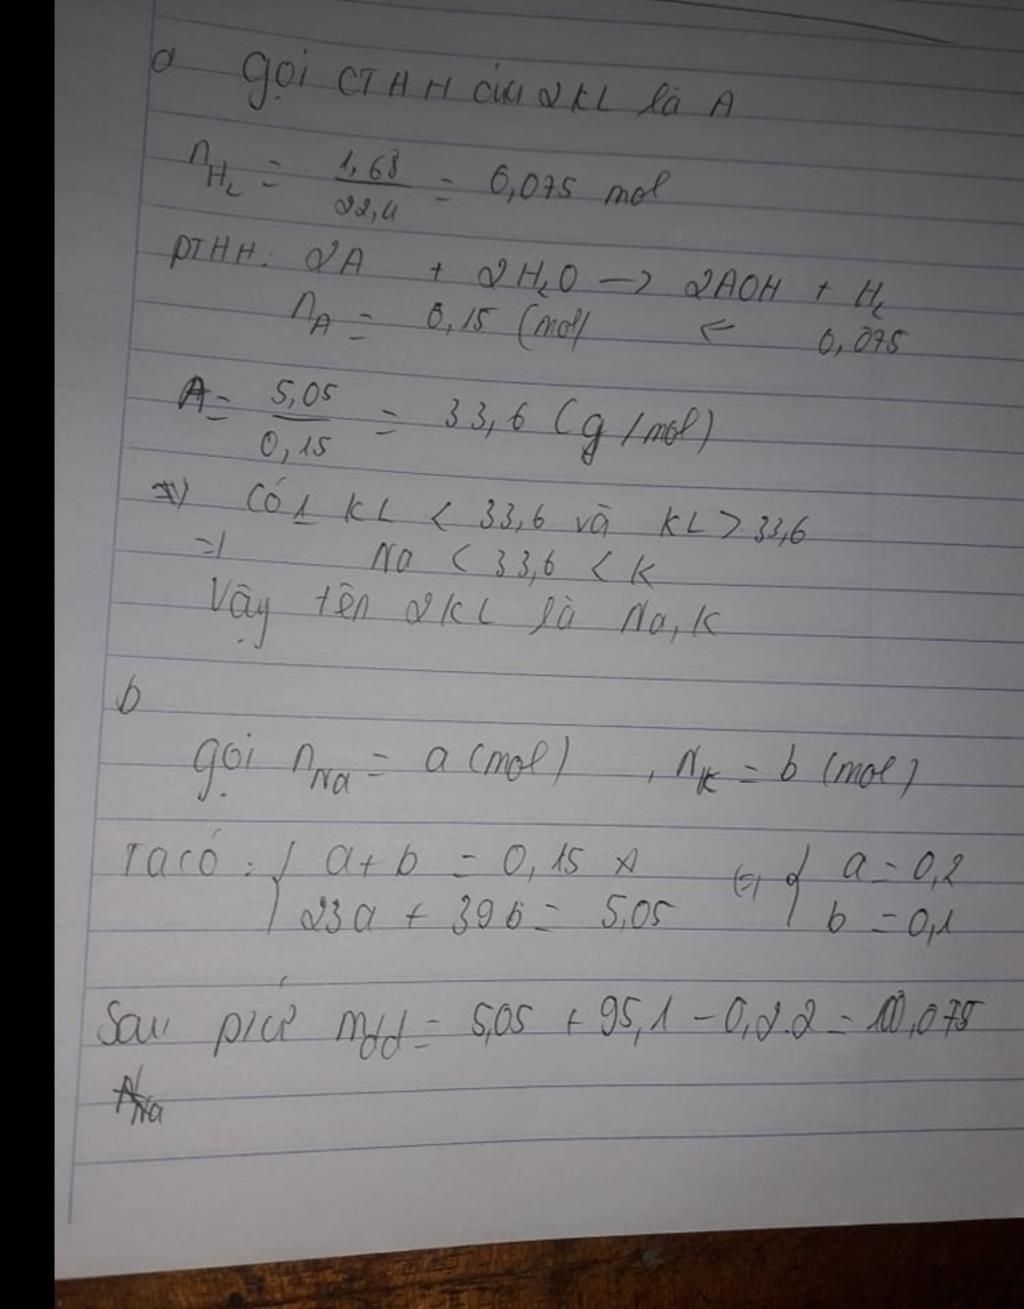 a gọi CTHH của 2KL là A
nH2 = 1,68/22,4 = 0,075 mol
PTHH: 2A + 2H2O -> 2AOH + H2
nA = 0,15 (mol) <- 0,075
A = 5,05/0,15 = 33,6 (g/mol)
=> Có 1 KL < 33,6 và KL > 33,6
=> Na < 33,6 < K
Vậy tên 2KL là Na, K
b
gọi nNa = a (mol) , nK = b (mol)
Ta có : { a + b = 0,15 <=> { a = 0,2
23a + 39b = 5,05 b = 0,1
Sau pứ mdd = 5,05 + 95,1 - 0,2.2 =